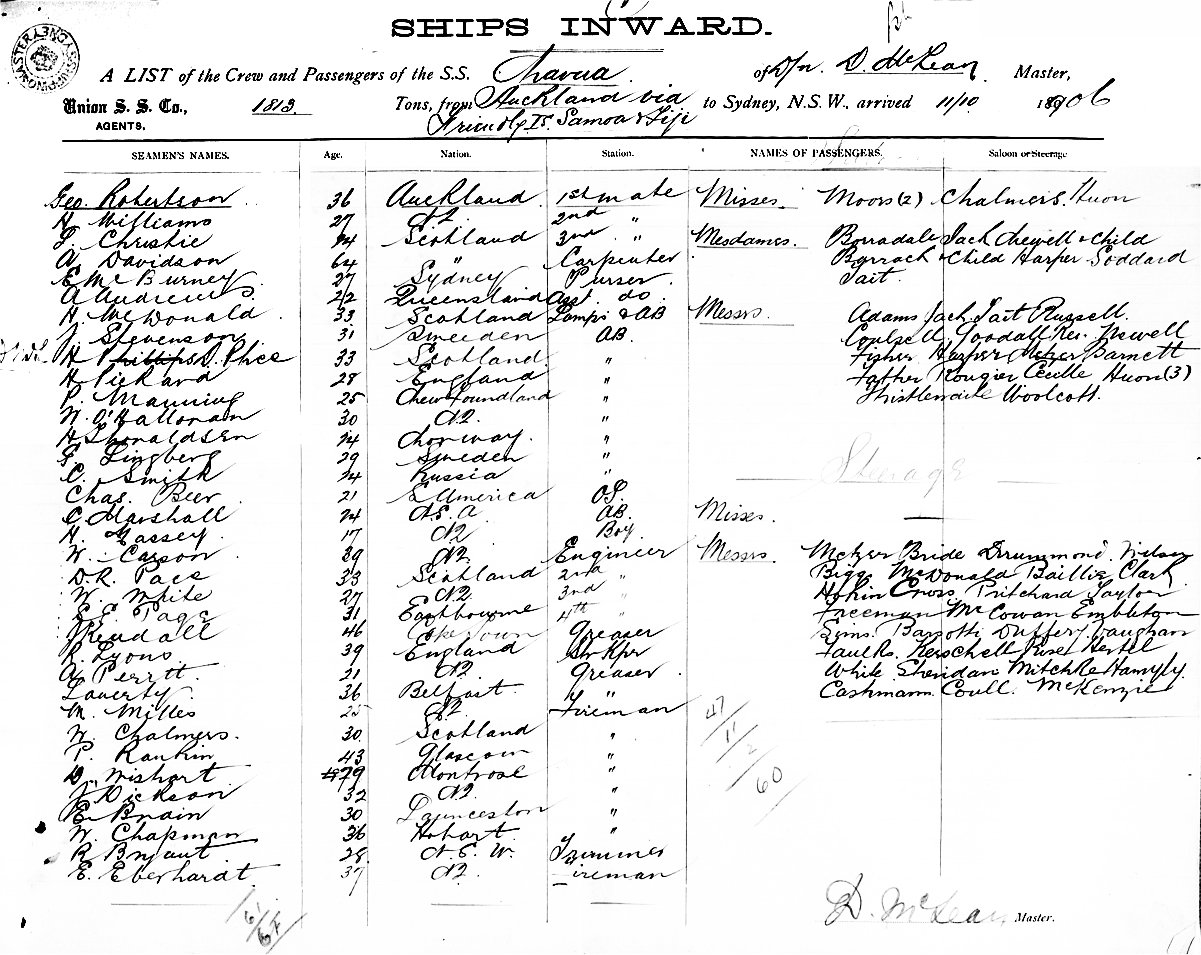 SHIPS INWARD.
A LIST of the Crew and Passengers of the S.S. of D. McLean Master,
Union S. S. Co., 1813 Tons, from Auckland via to Sydney, N.S.W., arrived 11/10 1906
AGENTS. Friendly Is. Samoa & Fiji
SEAMEN'S NAMES. Age. Nation. Station. NAMES OF PASSENGERS. Saloon or Steerage
Geo. Robertson 36 Auckland 1st mate Misses. Moors (2) Chalmers. Huon
H. Williams 27 NZ. 2nd "
Christie 24 Scotland 3rd " Mesdames. Borradale Jack Chewell & Child
A Davidson 64 " Carpenter Barrack & Child Harper Goddard
E Mc Burney 27 Sydney Purser Tait.
A Andrews 22 Queensland Asst. do.
H. McDonald 33 Scotland Lamps & AB Messrs. Adams Jack Tait Russell.
J. Stevenson 31 Sweeden AB. Goodall Rev. Newell
H Phillips D. Price 33 Scotland " Fisher Harper Barnett
H Pickard 28 England " Father Rougier Cecille Huon (3)
P. Manning 25 Newfoundland " Woolcott.
W. O'Halloran 30 NZ. "
24 Norway. "
Lingberg 29 Sweden "
C. Smith 24 Russia " Steerage
Chas. Beer 21 S America OS.
C. Marshall 24 AB. Misses. —
H. Gassey 17 NZ Boy
W. Carson 39 NZ. Engineer Messrs Bride Drummond. Wilson
D.R. Pace 33 Scotland 2nd " Bigg McDonald Baillie Clark
W. White 27 NZ 3rd " Cross. Pritchard Taylor
E.E. Page 31 Eastbourne 4th " Freeman McCowan Embleton
Kendall 46 Greaser Barsotti Duffery. Vaughan
R. Lyons 39 England Faulks. Kerschell Rose Hertel
A. Perritt 21 NZ. Greaser. White Sheridan Mitchell
Laverty 36 Belfast. " Cashmann. Coull. McKenzie
M. Milles 25 NZ Fireman 47
W. Chalmers. 30 Scotland " 11
P. Rankin 43 Glasgow " 2
D. Wishart 29 Montrose " 60
J Dickson 32 NZ "
E. Brain 30 Launceston "
W. Chapman 36 Hobart. "
R Bryant 28 N.S.W. Trimmer
E. Eberhardt 37 NZ. Fireman
D. McLean Master.